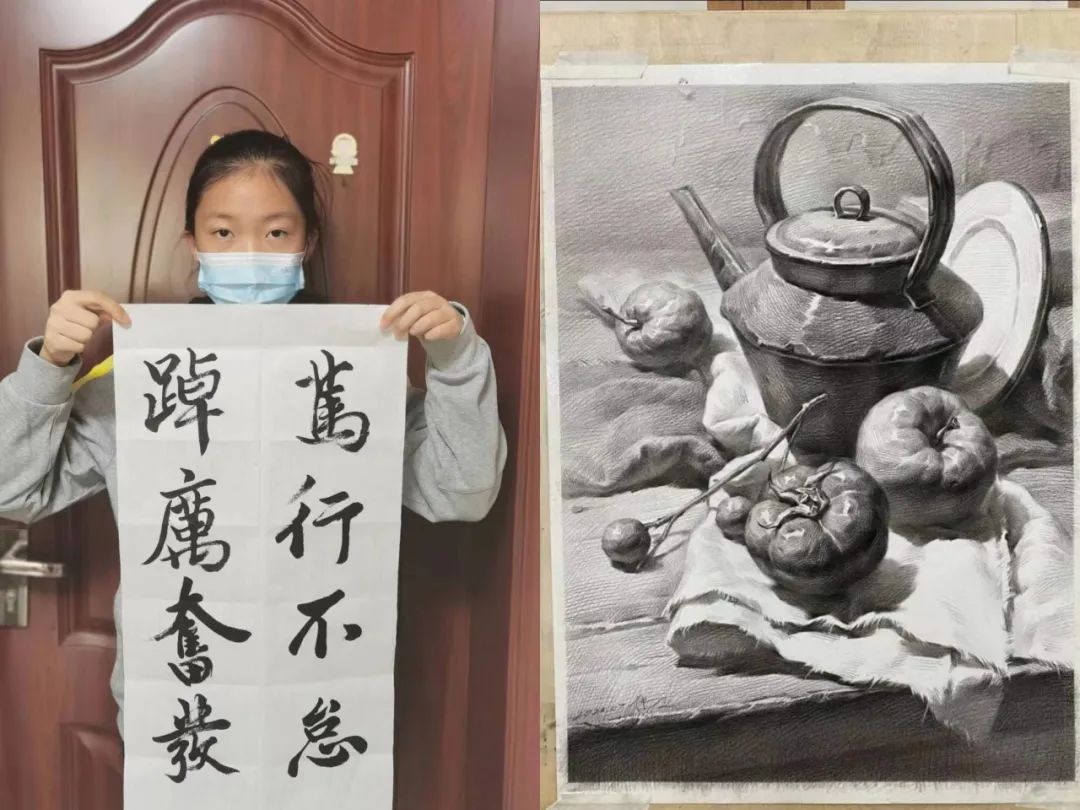 篤行不怠
踔厲奮發